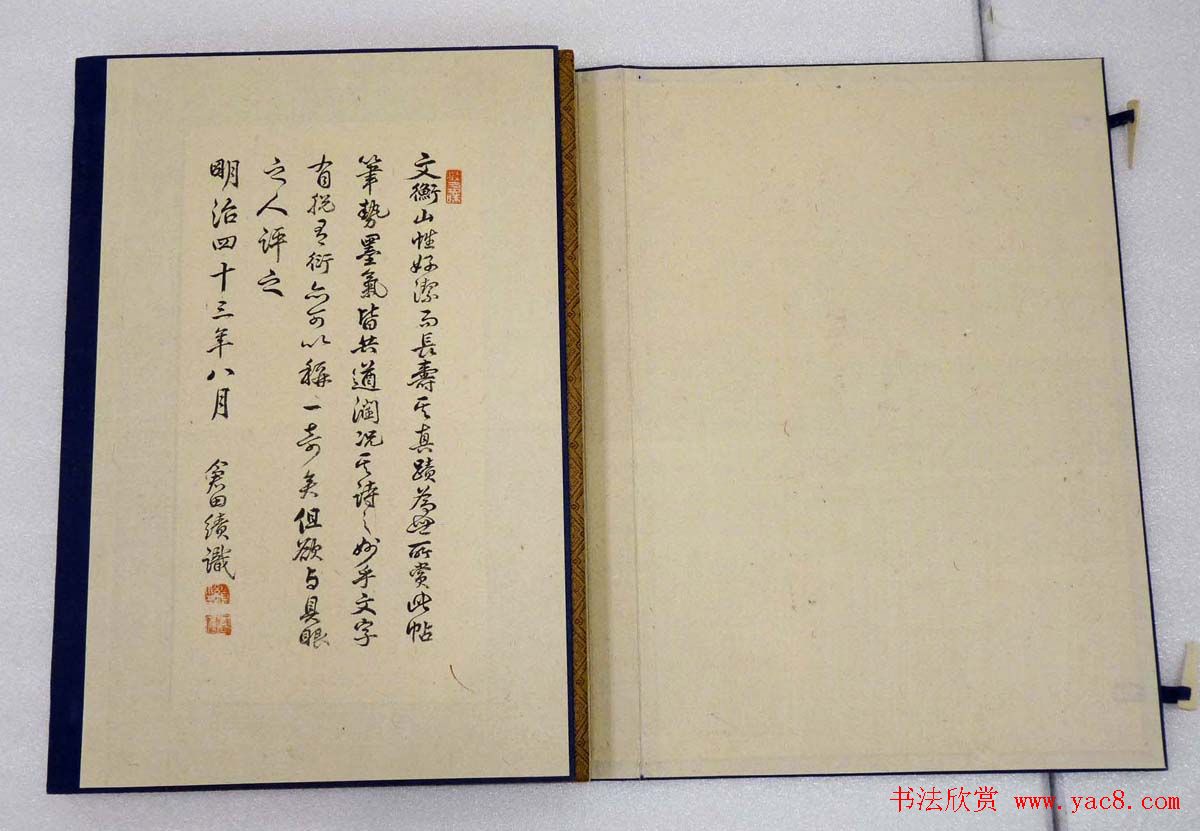 文衡山性好潔而長壽其真蹟為世所賞此帖
筆勢墨氣皆共遒潤況其詩之妙乎文字
有挩有衍亦可以稱一奇矣但欲与具眼
之人評之
明治四十三年八月 倉田績識
书法欣赏 www.yac8.com